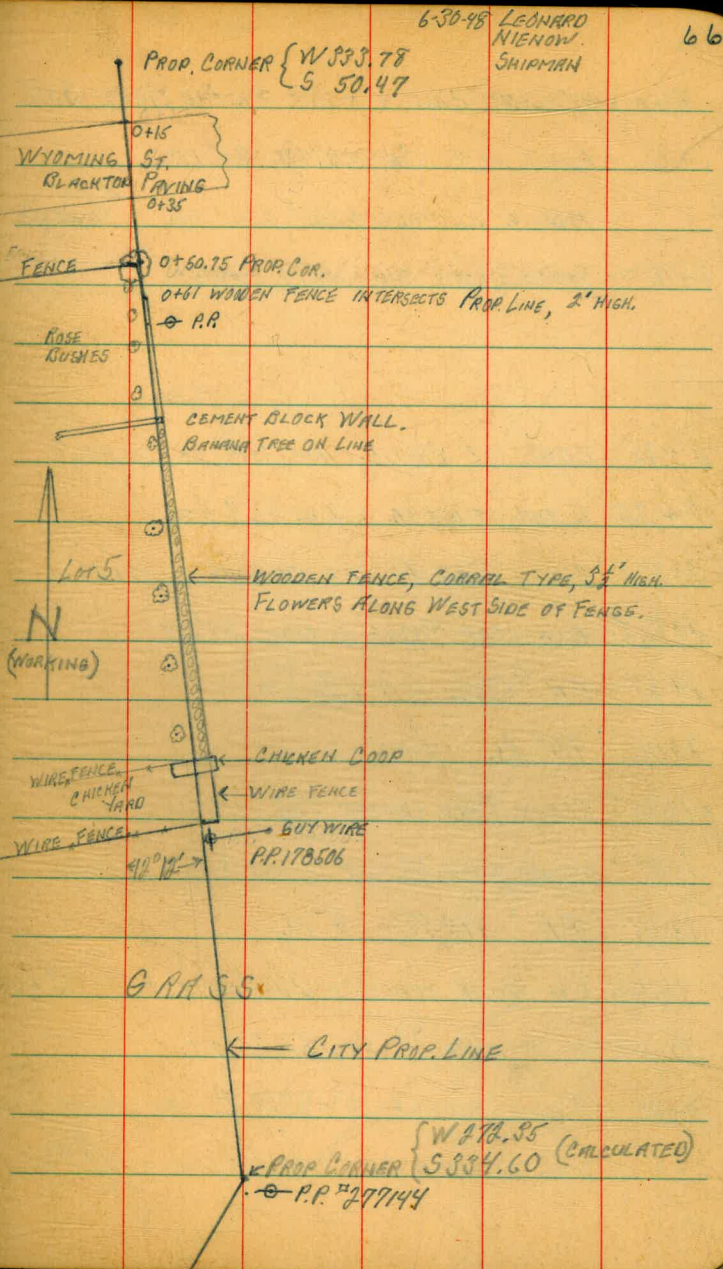 6-30-48 LEONARD
NIENOW
SHIPMAN
66
PROP. CORNER { W 333.78
S 50.47
0+15
WYOMING ST.
BLACKTOP PAVING
0+35
FENCE
0+50.75 PROP. COR.
0+61 WOODEN FENCE INTERSECTS PROP. LINE, 2' HIGH.
P.P.
ROSE
BUSHES
CEMENT BLOCK WALL.
BANANA TREE ON LINE
LOT 5
WOODEN FENCE, CORRAL TYPE, 3½' HIGH.
FLOWERS ALONG WEST SIDE OF FENCE.
N
(WORKING)
CHICKEN COOP
WIRE FENCE
CHICKEN
YARD
WIRE FENCE
WIRE FENCE
GUY WIRE
P.P. 178506
92°12'
GRASS
CITY PROP. LINE
PROP CORNER { W 272.35
S 334.60 (CALCULATED)
P.P. #277144